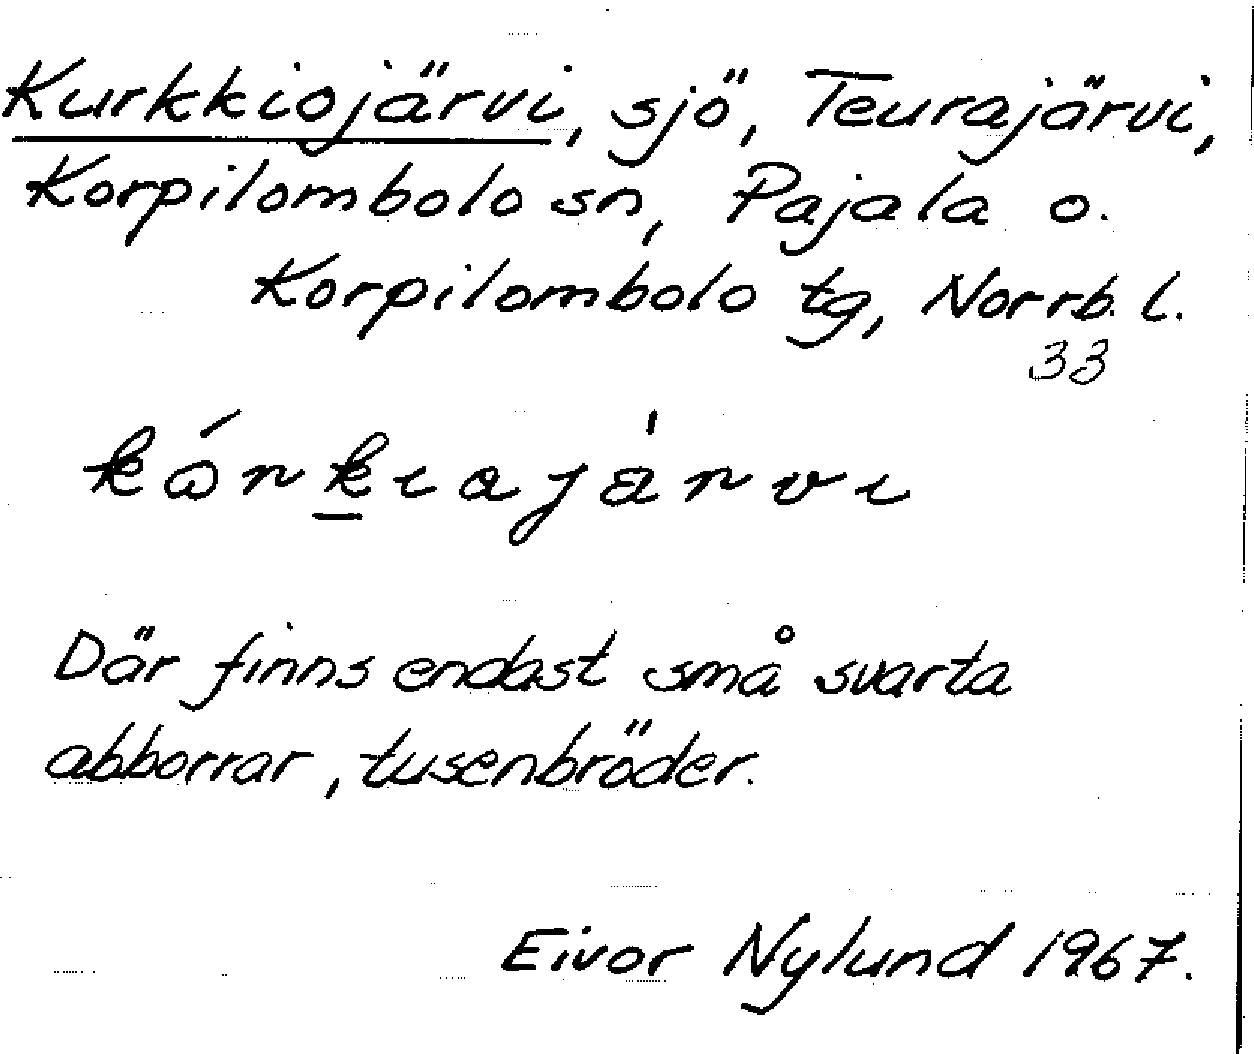 Kurkkiojärvi, sjö, Teurajärvi,
Korpilombolo sn, Pajala o.
Korpilombolo tg, Norrb. l.
33
Där finns endast små svarta
abborrar, tusenbröder.
Eivor Nylund 1967.